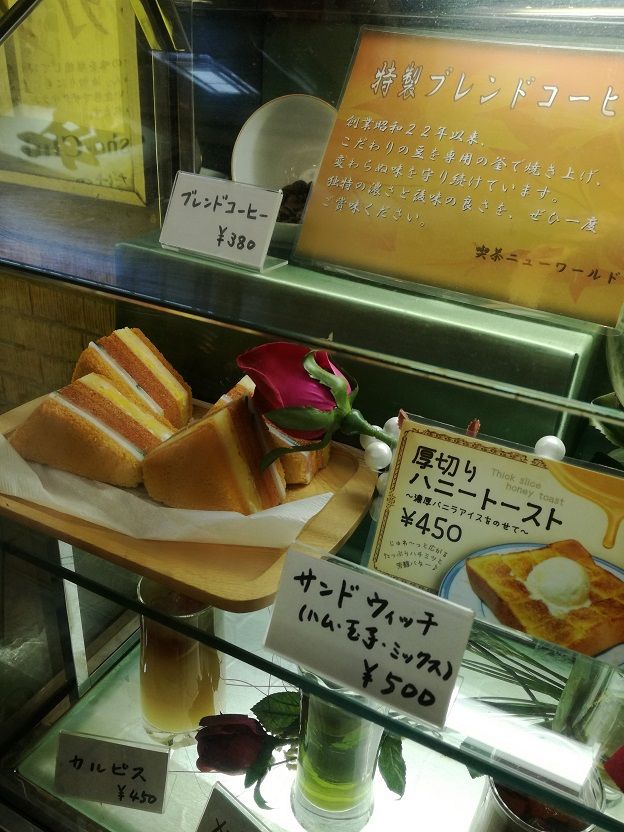 特製ブレンドコーヒ
創業昭和22年以来、
こだわりの豆を専用の釜で焼き上げ、
変わらぬ味を守り続けています。
独特の濃さと後味の良さを、ぜひ一度
ご賞味ください。
喫茶ニューワールド
ブレンドコーヒー
¥380
厚切り
Thick slice
honey toast
ハニートースト
〜濃厚バニラアイスをのせて〜
¥450
じゅわ〜っと広がる
たっぷりハチミツと
芳醇バター♪
サンドウィッチ
(ハム・玉子・ミックス)
¥500
カルピス
¥450